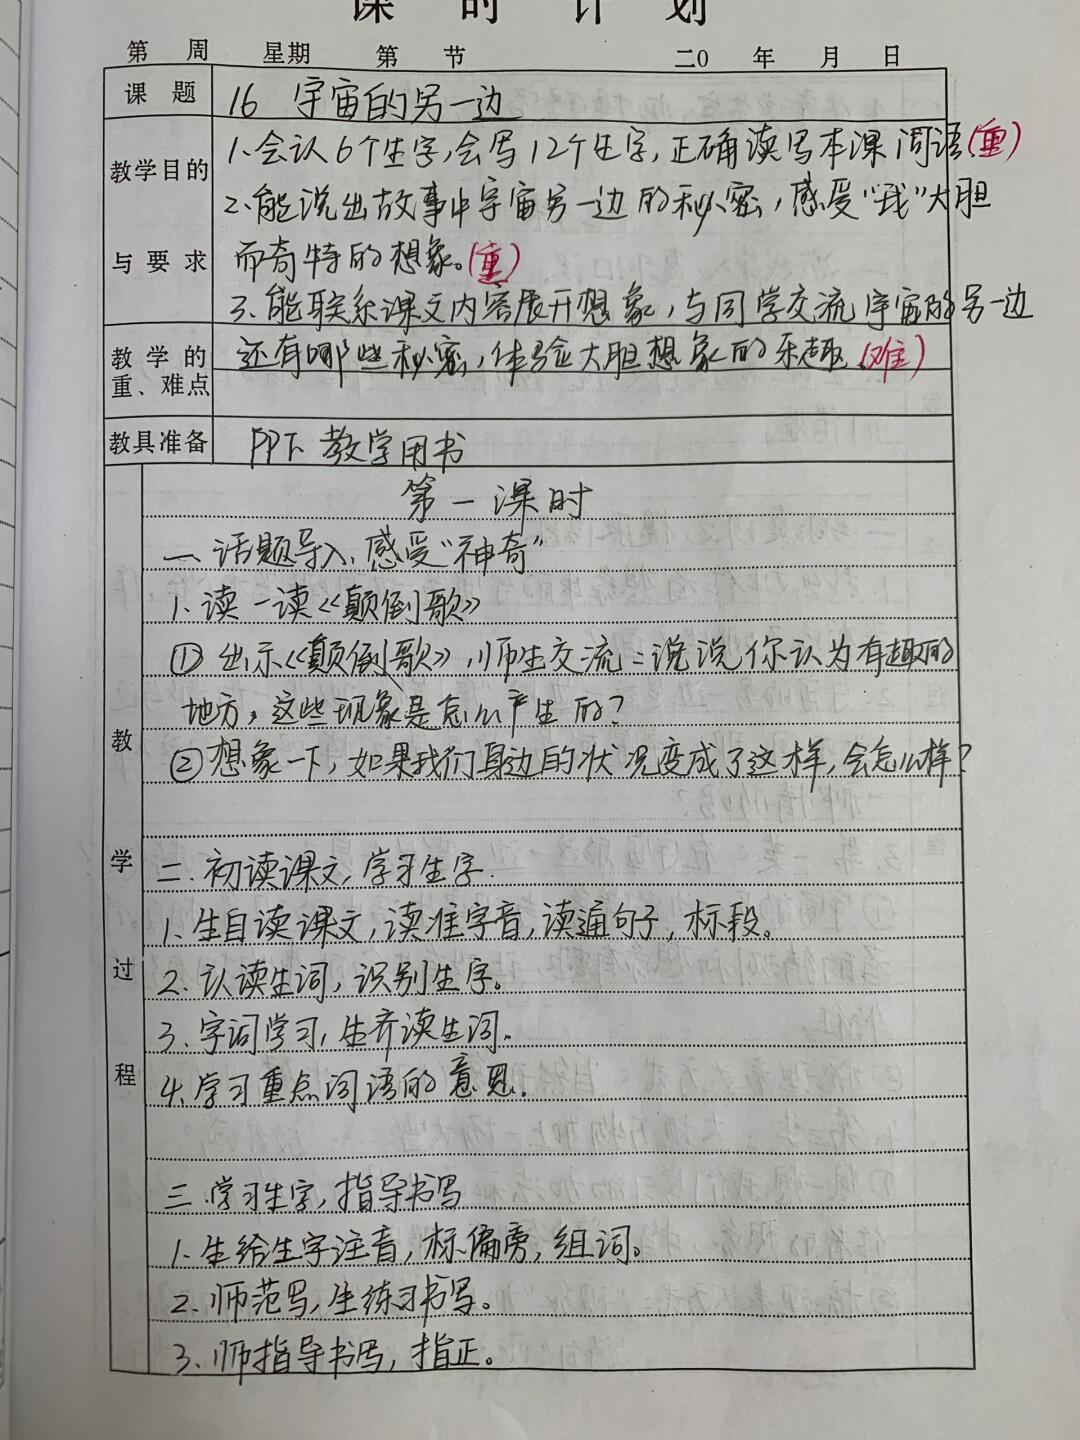 课 时 计 划
第 周 星期 第 节 二0 年 月 日
课 题 16 宇宙的另一边
教学目的与要求
1、会认6个生字,会写12个生字,正确读写本课词语(重)
2、能说出故事中宇宙另一边的秘密,感受“我”大胆
而奇特的想象。(重)
3、能联系课文内容展开想象,与同学交流宇宙的另一边
还有哪些秘密,体验大胆想象的乐趣.(难)
教学的重、难点
教具准备 PPT、教学用书
教学过程
第一课时
一、话题导入,感受“神奇”
1、读一读《颠倒歌》
①出示《颠倒歌》,师生交流:说说你认为有趣的
地方,这些现象是怎么产生的?
②想象一下,如果我们身边的状况变成了这样,会怎么样?
二、初读课文,学习生字.
1、生自读课文,读准字音,读通句子,标段。
2、认读生词,识别生字。
3、字词学习,生齐读生词.
4、学习重点词语的意思.
三、学习生字,指导书写
1、生给生字注音,标偏旁,组词。
2、师范写,生练习书写。
3、师指导书写,指正。